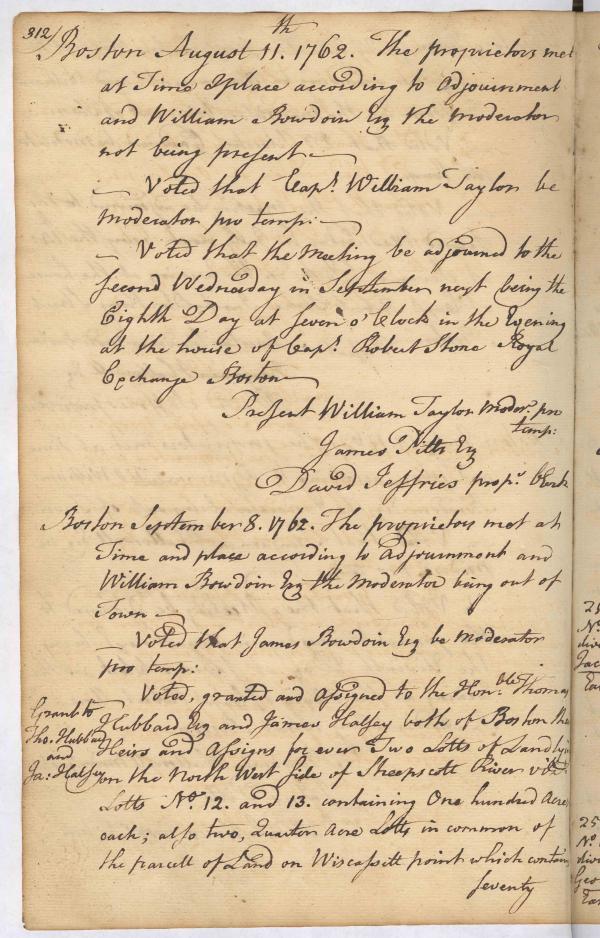 312/
Boston August 11.th 1762. The proprietors met
at Time & place according to Adjournment
and William Bowdoin Esq the moderator
not being present
— Voted that Capt. William Taylor be
moderator pro temp:
— Voted that the meeting be adjourned to the
second Wednesday in September next being the
Eighth Day at seven o'Clock in the Evening
at the house of Capt. Robert Stone Royal
Exchange Boston
Present William Taylor moder. pro
temp:
James Pitts Esq
David Jeffries propr. Clerk
Boston September 8. 1762. The proprietors met at
Time and place according to Adjournment and
William Bowdoin Esq the Moderator being out of
Town
— Voted that James Bowdoin Esq be moderator
pro temp:
Voted, granted and assigned to the Honble. Thomas
Grant to
Tho. Hubbard
and
Ja: Halsey
Hubbard Esq and James Halsey both of Boston their
Heirs and Assigns for ever Two Lotts of Land lying
on the North West side of Sheepscott River vizt.
Lotts No. 12. and 13. containing One hundred Acres
each; also two, Quarter Acre Lotts in common of
the parcell of Land on Wiscassett point which contains
seventy
25
No.
divi
Jac
Ea
25
No
divi
Geo
Ea